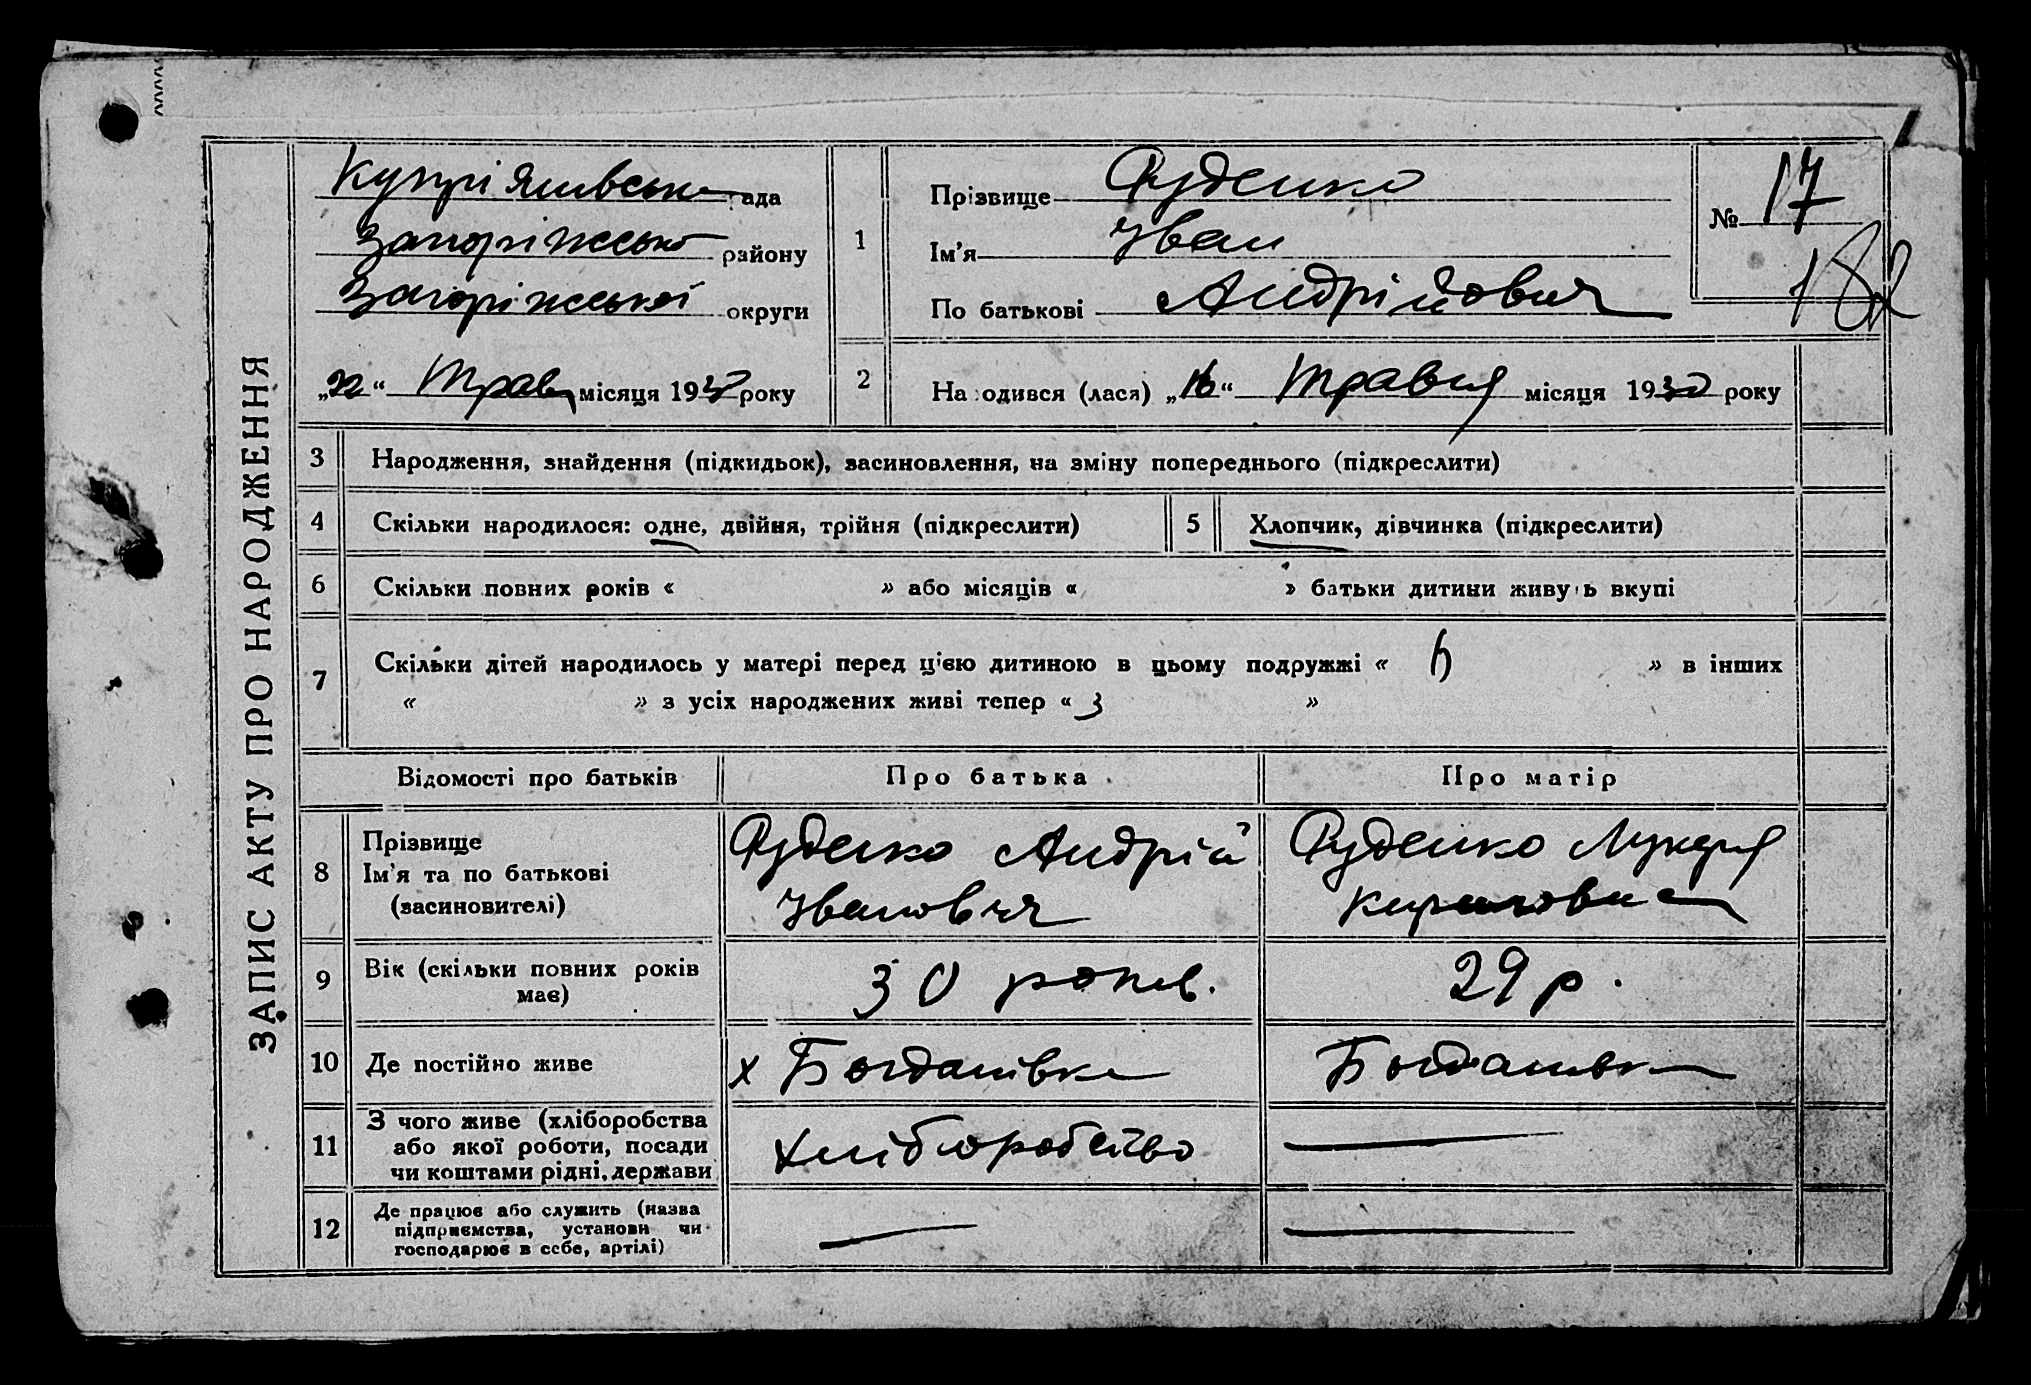 ЗАПИС АКТУ ПРО НАРОДЖЕННЯ
Купріянівська рада
Запоріжсько району
Запоріжської округи
„22“ Травня місяця 1930 року
1
Прізвище Руденко
Ім'я Іван
По батькові Андрійович
№ 17
182
2
Народився (лася) „16“ Травня місяця 1930 року
3 Народження, знайдення (підкидьок), засиновлення, на зміну попереднього (підкреслити)
4 Скільки народилося: одне, двійня, трійня (підкреслити)
5 Хлопчик, дівчинка (підкреслити)
6 Скільки повних років « » або місяців « » батьки дитини живуть вкупі
7 Скільки дітей народилось у матері перед цією дитиною в цьому подружжі « » в інших
« » з усіх народжених живі тепер « 3 »
Відомості про батьків Про батька Про матір
8
Прізвище
Ім'я та по батькові
(засиновителі)
Руденко Андрій
Іванович
Руденко Лукерія
Кириловна
9
Вік (скільки повних років
має)
30 років.
29 р.
10 Де постійно живе
х Богданівка
Богданівка
11
З чого живе (хліборобства
або якої роботи, посади
чи коштами рідні, держави
Хліборобство
12
Де працює або служить (назва
підприємства, установи чи
господарює в себе, артілі)